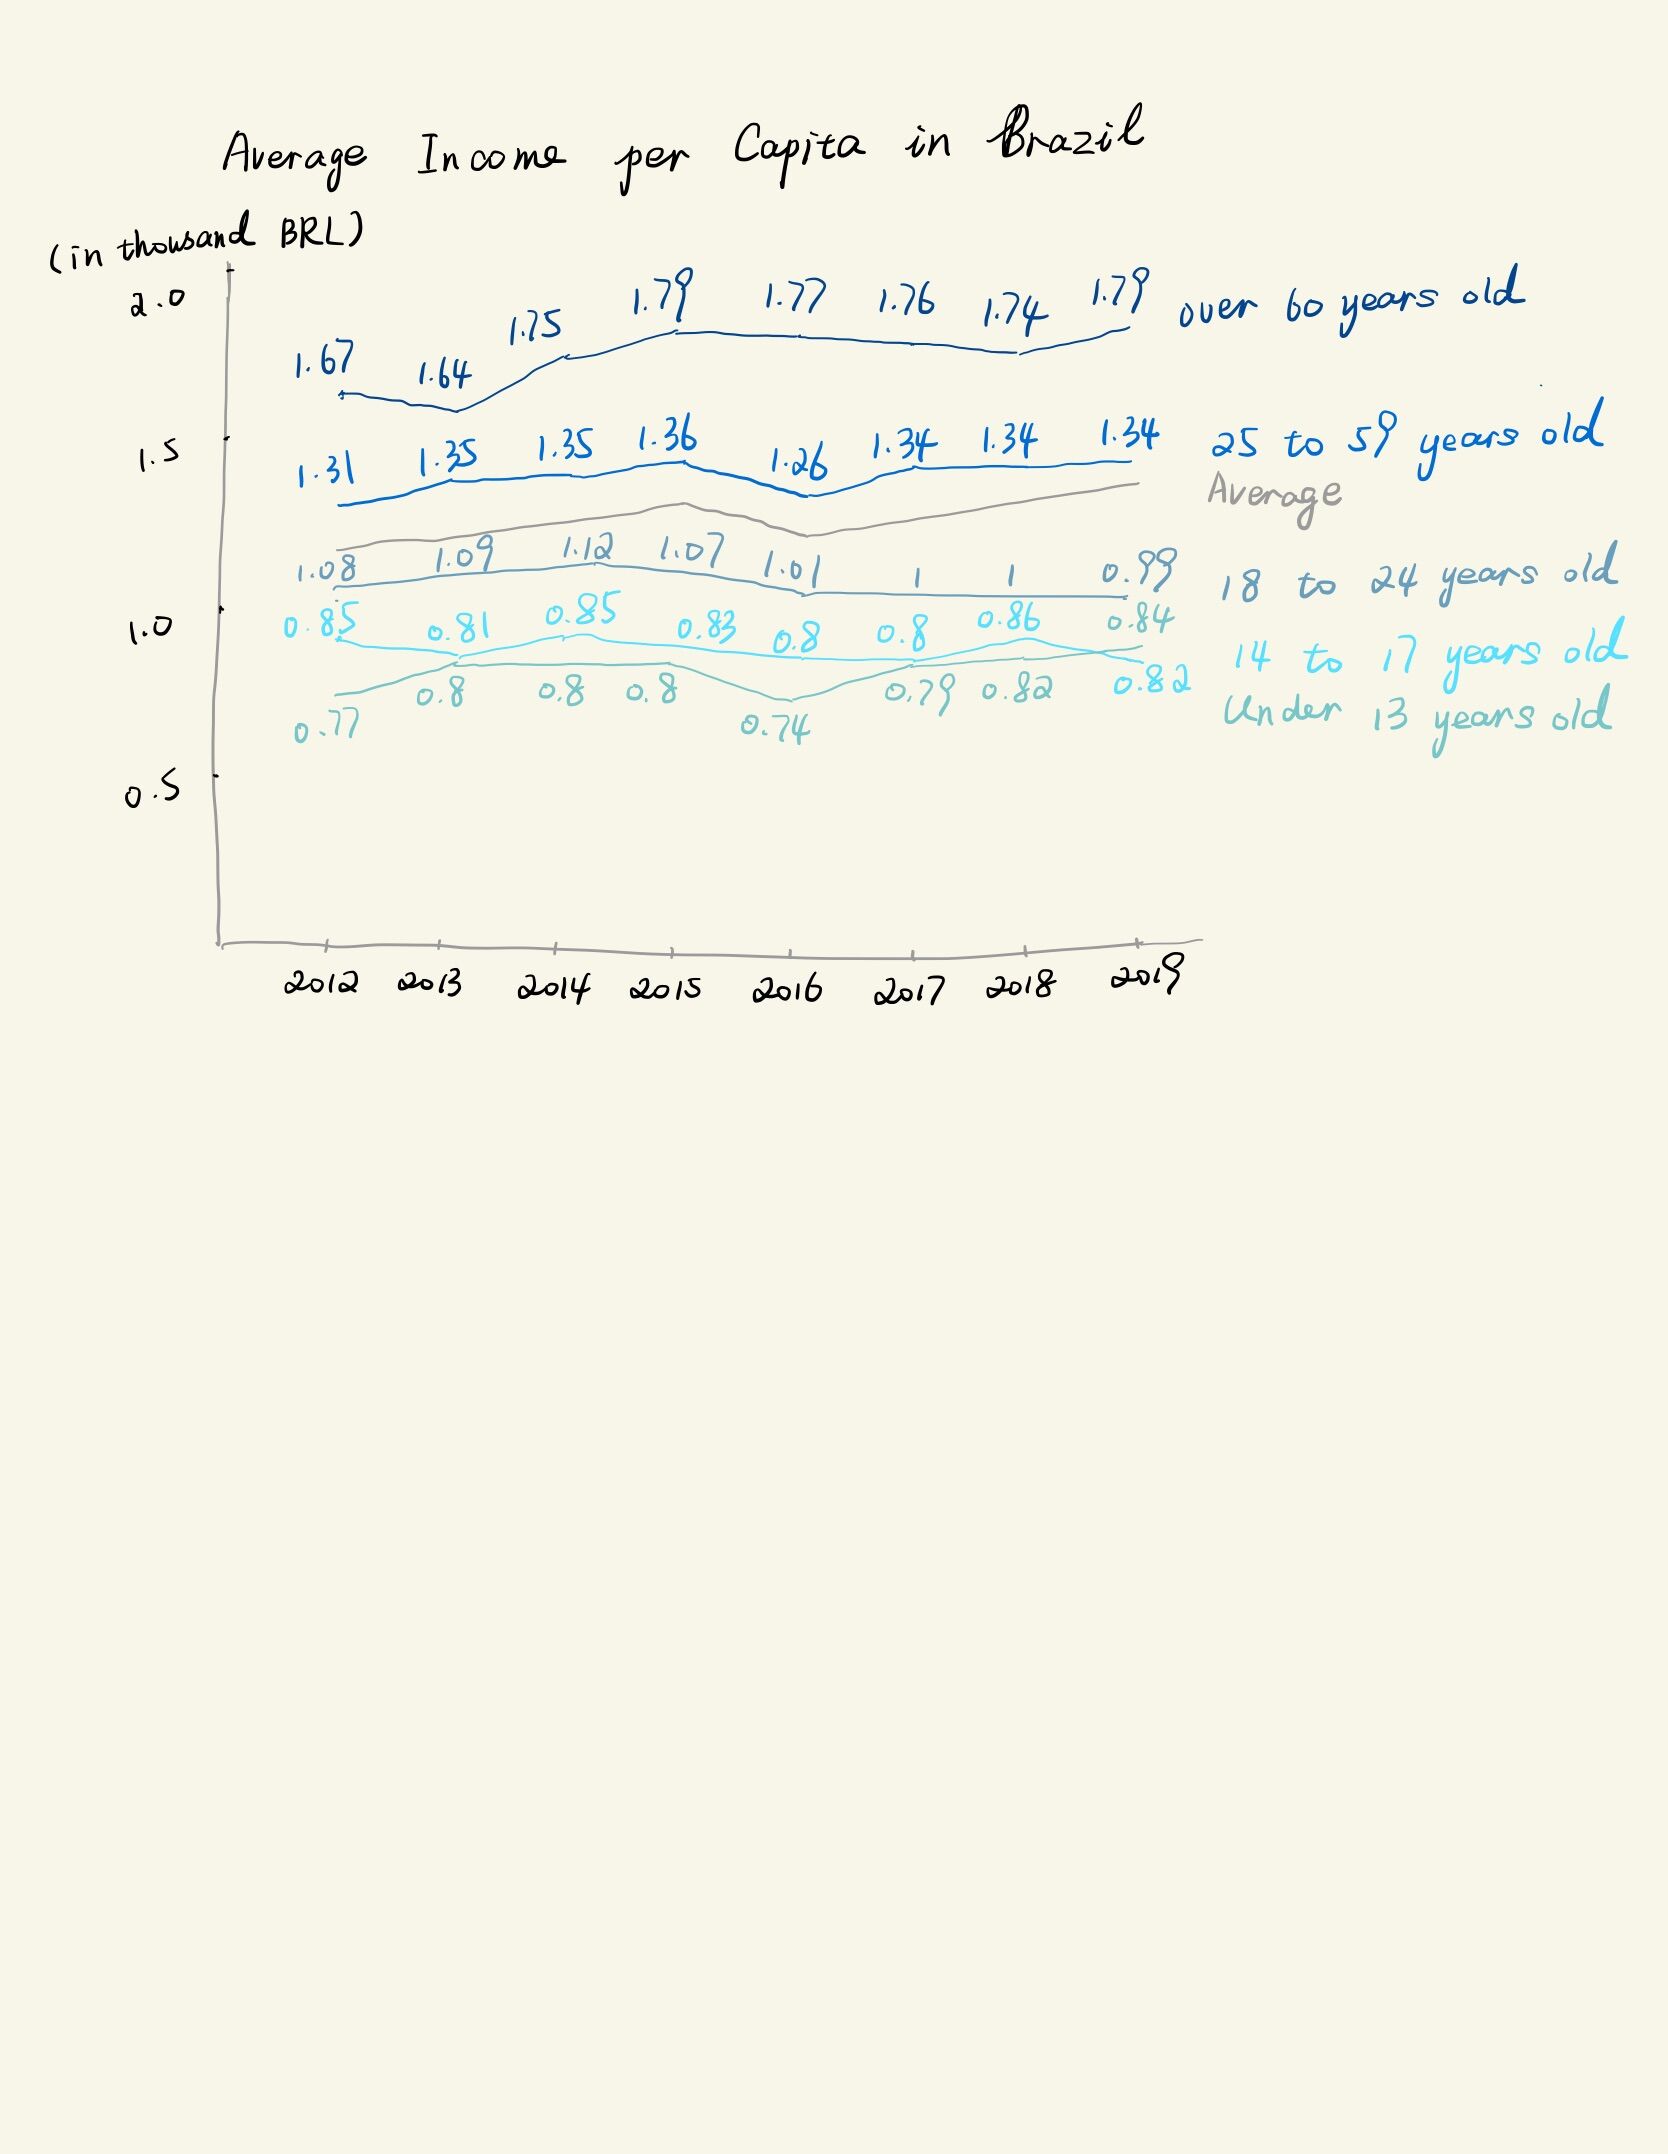 Average Income per Capita in Brazil
(in thousand BRL)
2.0
1.67 1.64 1.75 1.79 1.77 1.76 1.74 1.79 over 60 years old
1.5
1.31 1.35 1.35 1.36 1.26 1.34 1.34 1.34 25 to 59 years old
Average
1.08 1.09 1.12 1.07 1.01 1 1 0.99 18 to 24 years old
1.0
0.85 0.81 0.85 0.83 0.8 0.8 0.86 0.82 14 to 17 years old
0.77 0.8 0.8 0.8 0.74 0.79 0.82 0.84 Under 13 years old
0.5
2012 2013 2014 2015 2016 2017 2018 2019